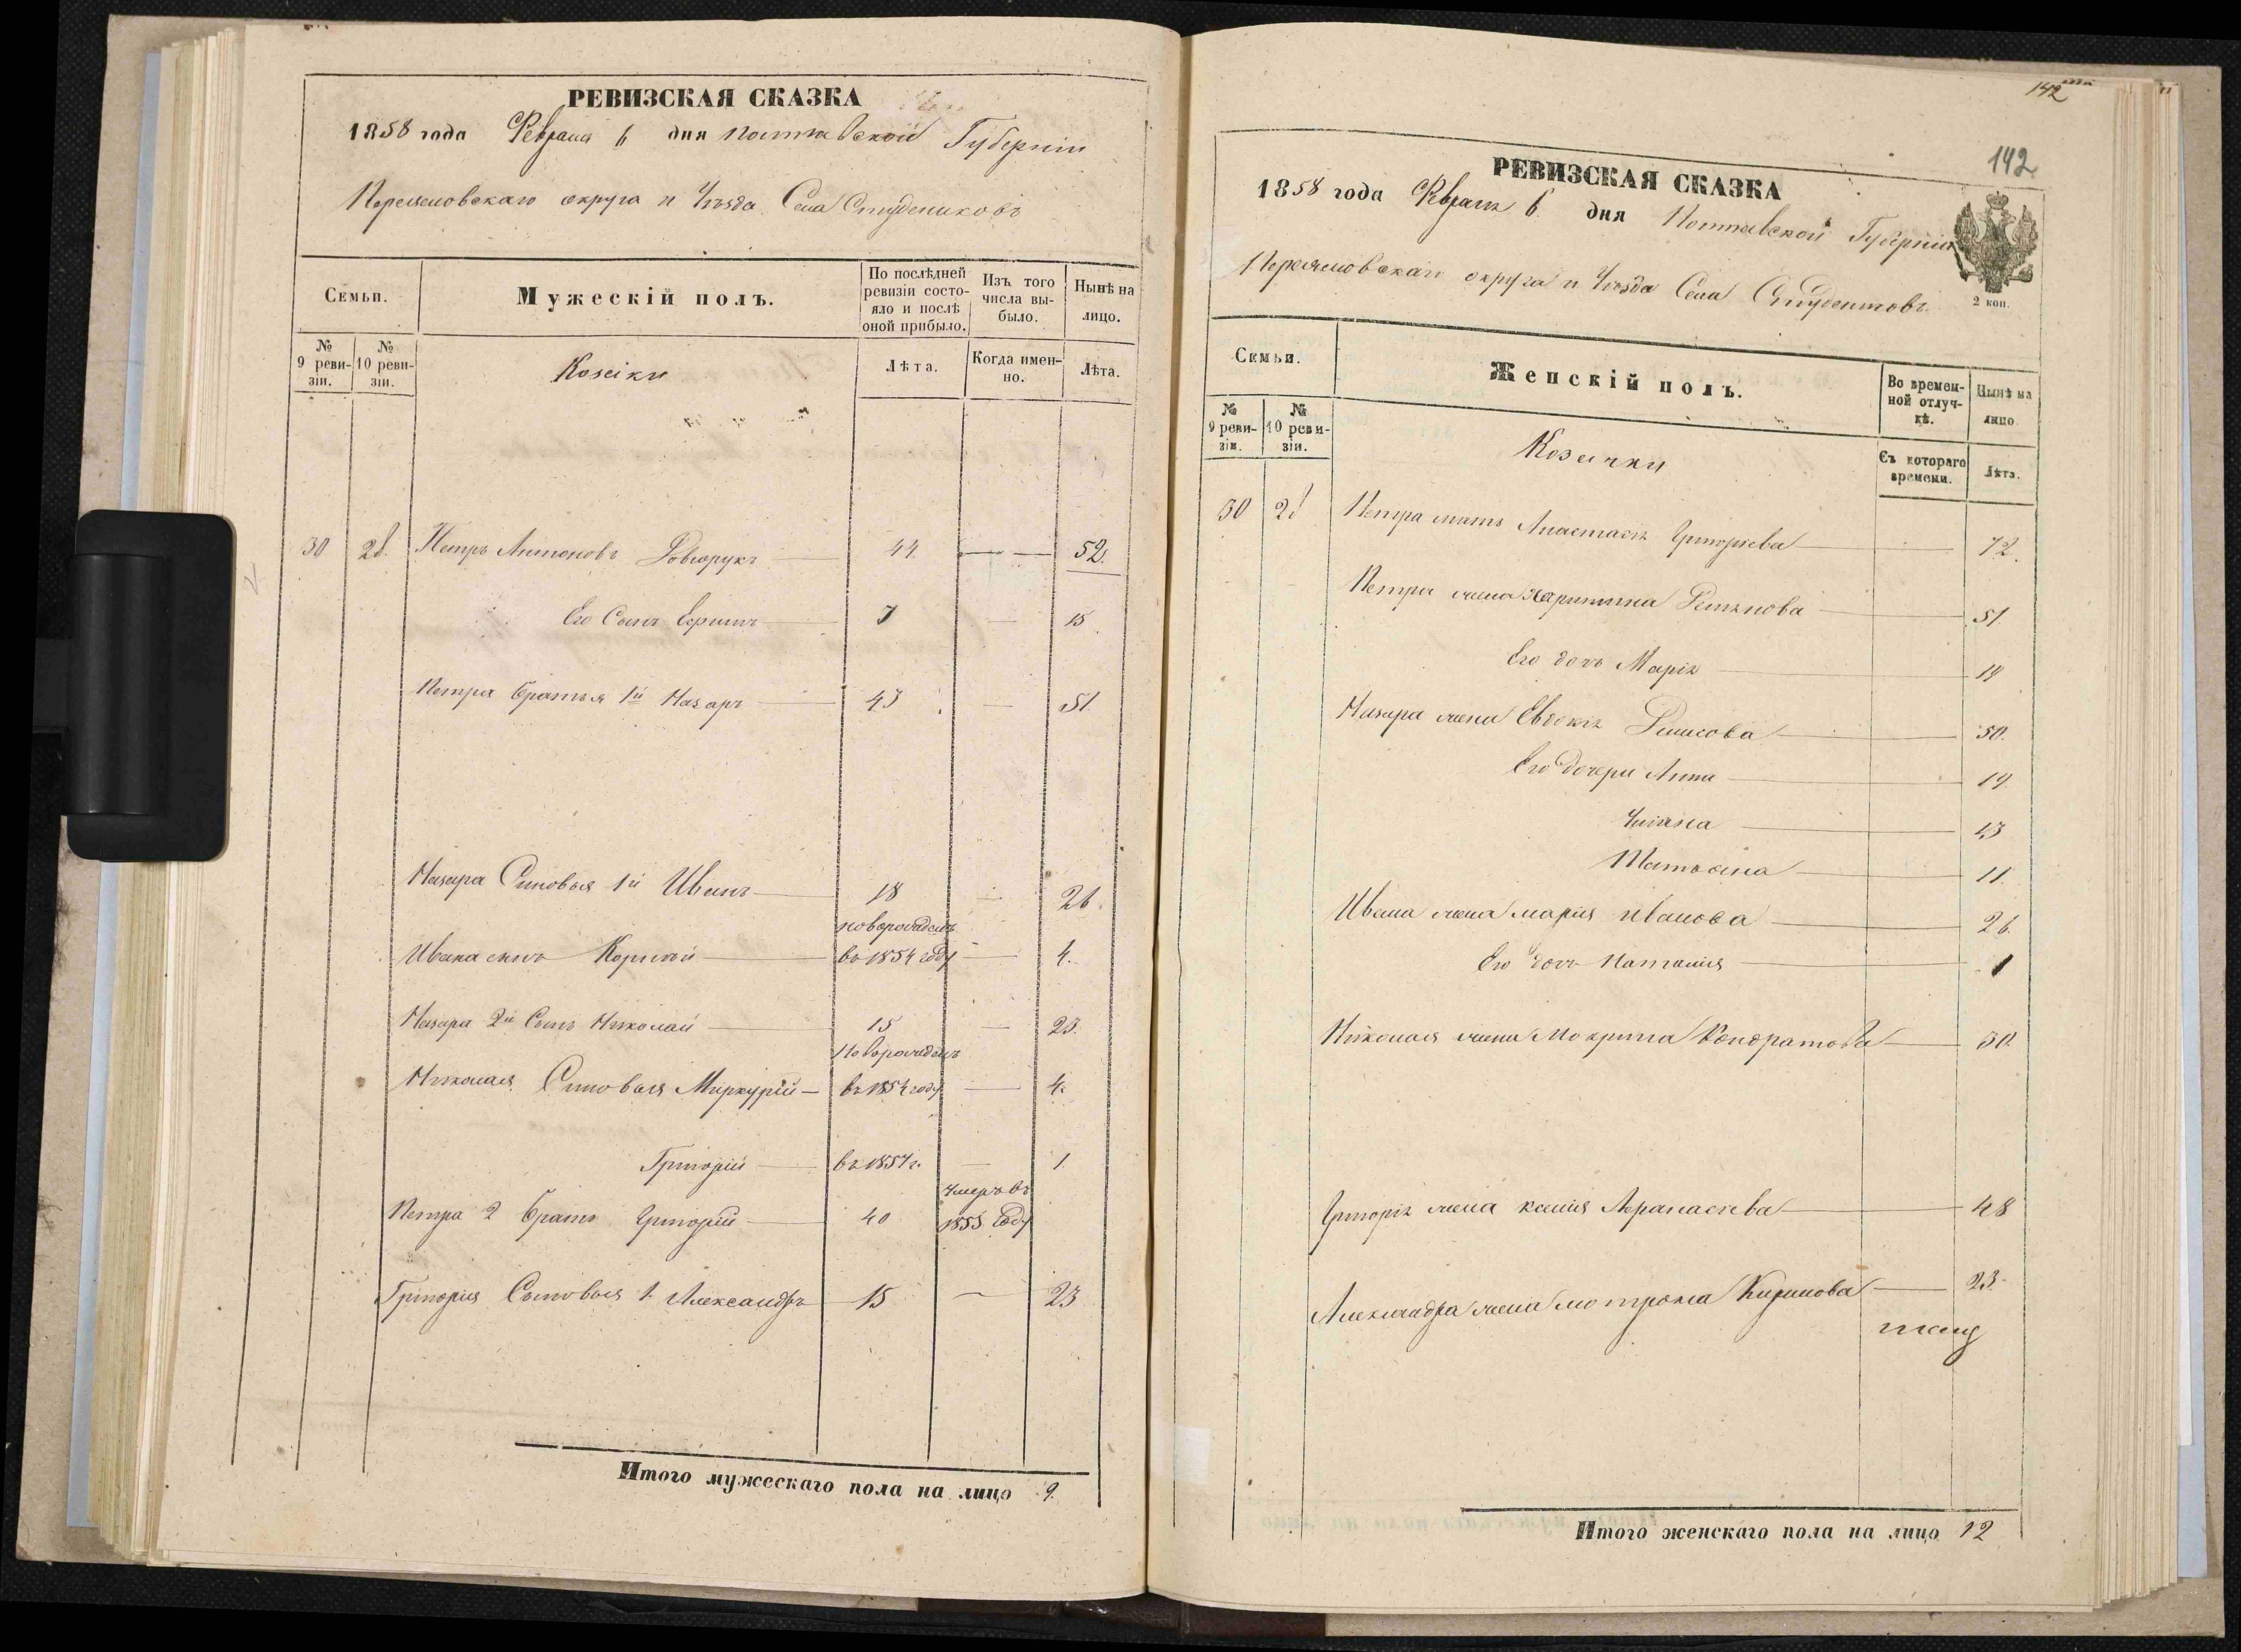 РЕВИЗСКАЯ СКАЗКА
1858 года Февраля 6 дня Полтавской Губерніи
Переяславскаго округа и Уѣзда Села Студениковъ
Семьи.
Мужескій полъ.
По послѣдней ревизіи состояло и послѣ оной прибыло.
Изъ того числа выбыло.
Нынѣ на лицо.
№ 9 ревизіи.
№ 10 ревизіи.
Козаки
Лѣта.
Когда именно.
Лѣта.
30 28. Петръ Антоновъ 44. — 52.
Его Сынъ Ефимъ 7 — 15
Петра братья 1й Назаръ 43 — 51.
Назара Сыновья 1й Иванъ 18 — 26.
новорожденъ
Ивана сынъ Корнѣй въ 1854 году — 4.
Назара 2й Сынъ Николай 15 — 23.
Новорожденъ
Николая Сыновья Меркурій въ 1854 году — 4.
Григорій въ 1857 г. — 1.
умеръ въ
Петра 2 братъ Григорій 40 1855 году
Григорія Сыновья 1. Александръ 15 — 23
Итого мужескаго пола на лицо 9.
142
142
РЕВИЗСКАЯ СКАЗКА
1858 года Февраля 6 дня Полтавской Губерніи
Переяславскаго округа и Уѣзда Села
2 коп.
Семьи.
Женскій полъ.
Во временной отлучкѣ.
Нынѣ на лицо.
№ 9 ревизіи.
№ 10 ревизіи.
Козачки
Съ котораго времени.
Лѣта.
30 28 Петра мать Анастасія Григорьева 72.
Петра жена Харитина 51.
Его дочь Марія 19
Назара жена Евдокія 50.
Его дочери Анна 19.
Уліяна 13
Татьяна 11.
Ивана жена Марія Иванова 26.
Его дочь Наталія 1
Николая жена Мокрина Кондратова 30.
Григорія жена Ксенія Афанасіева 48
Александра жена Мотрона Кирилова 23.
Итого женскаго пола на лицо 12